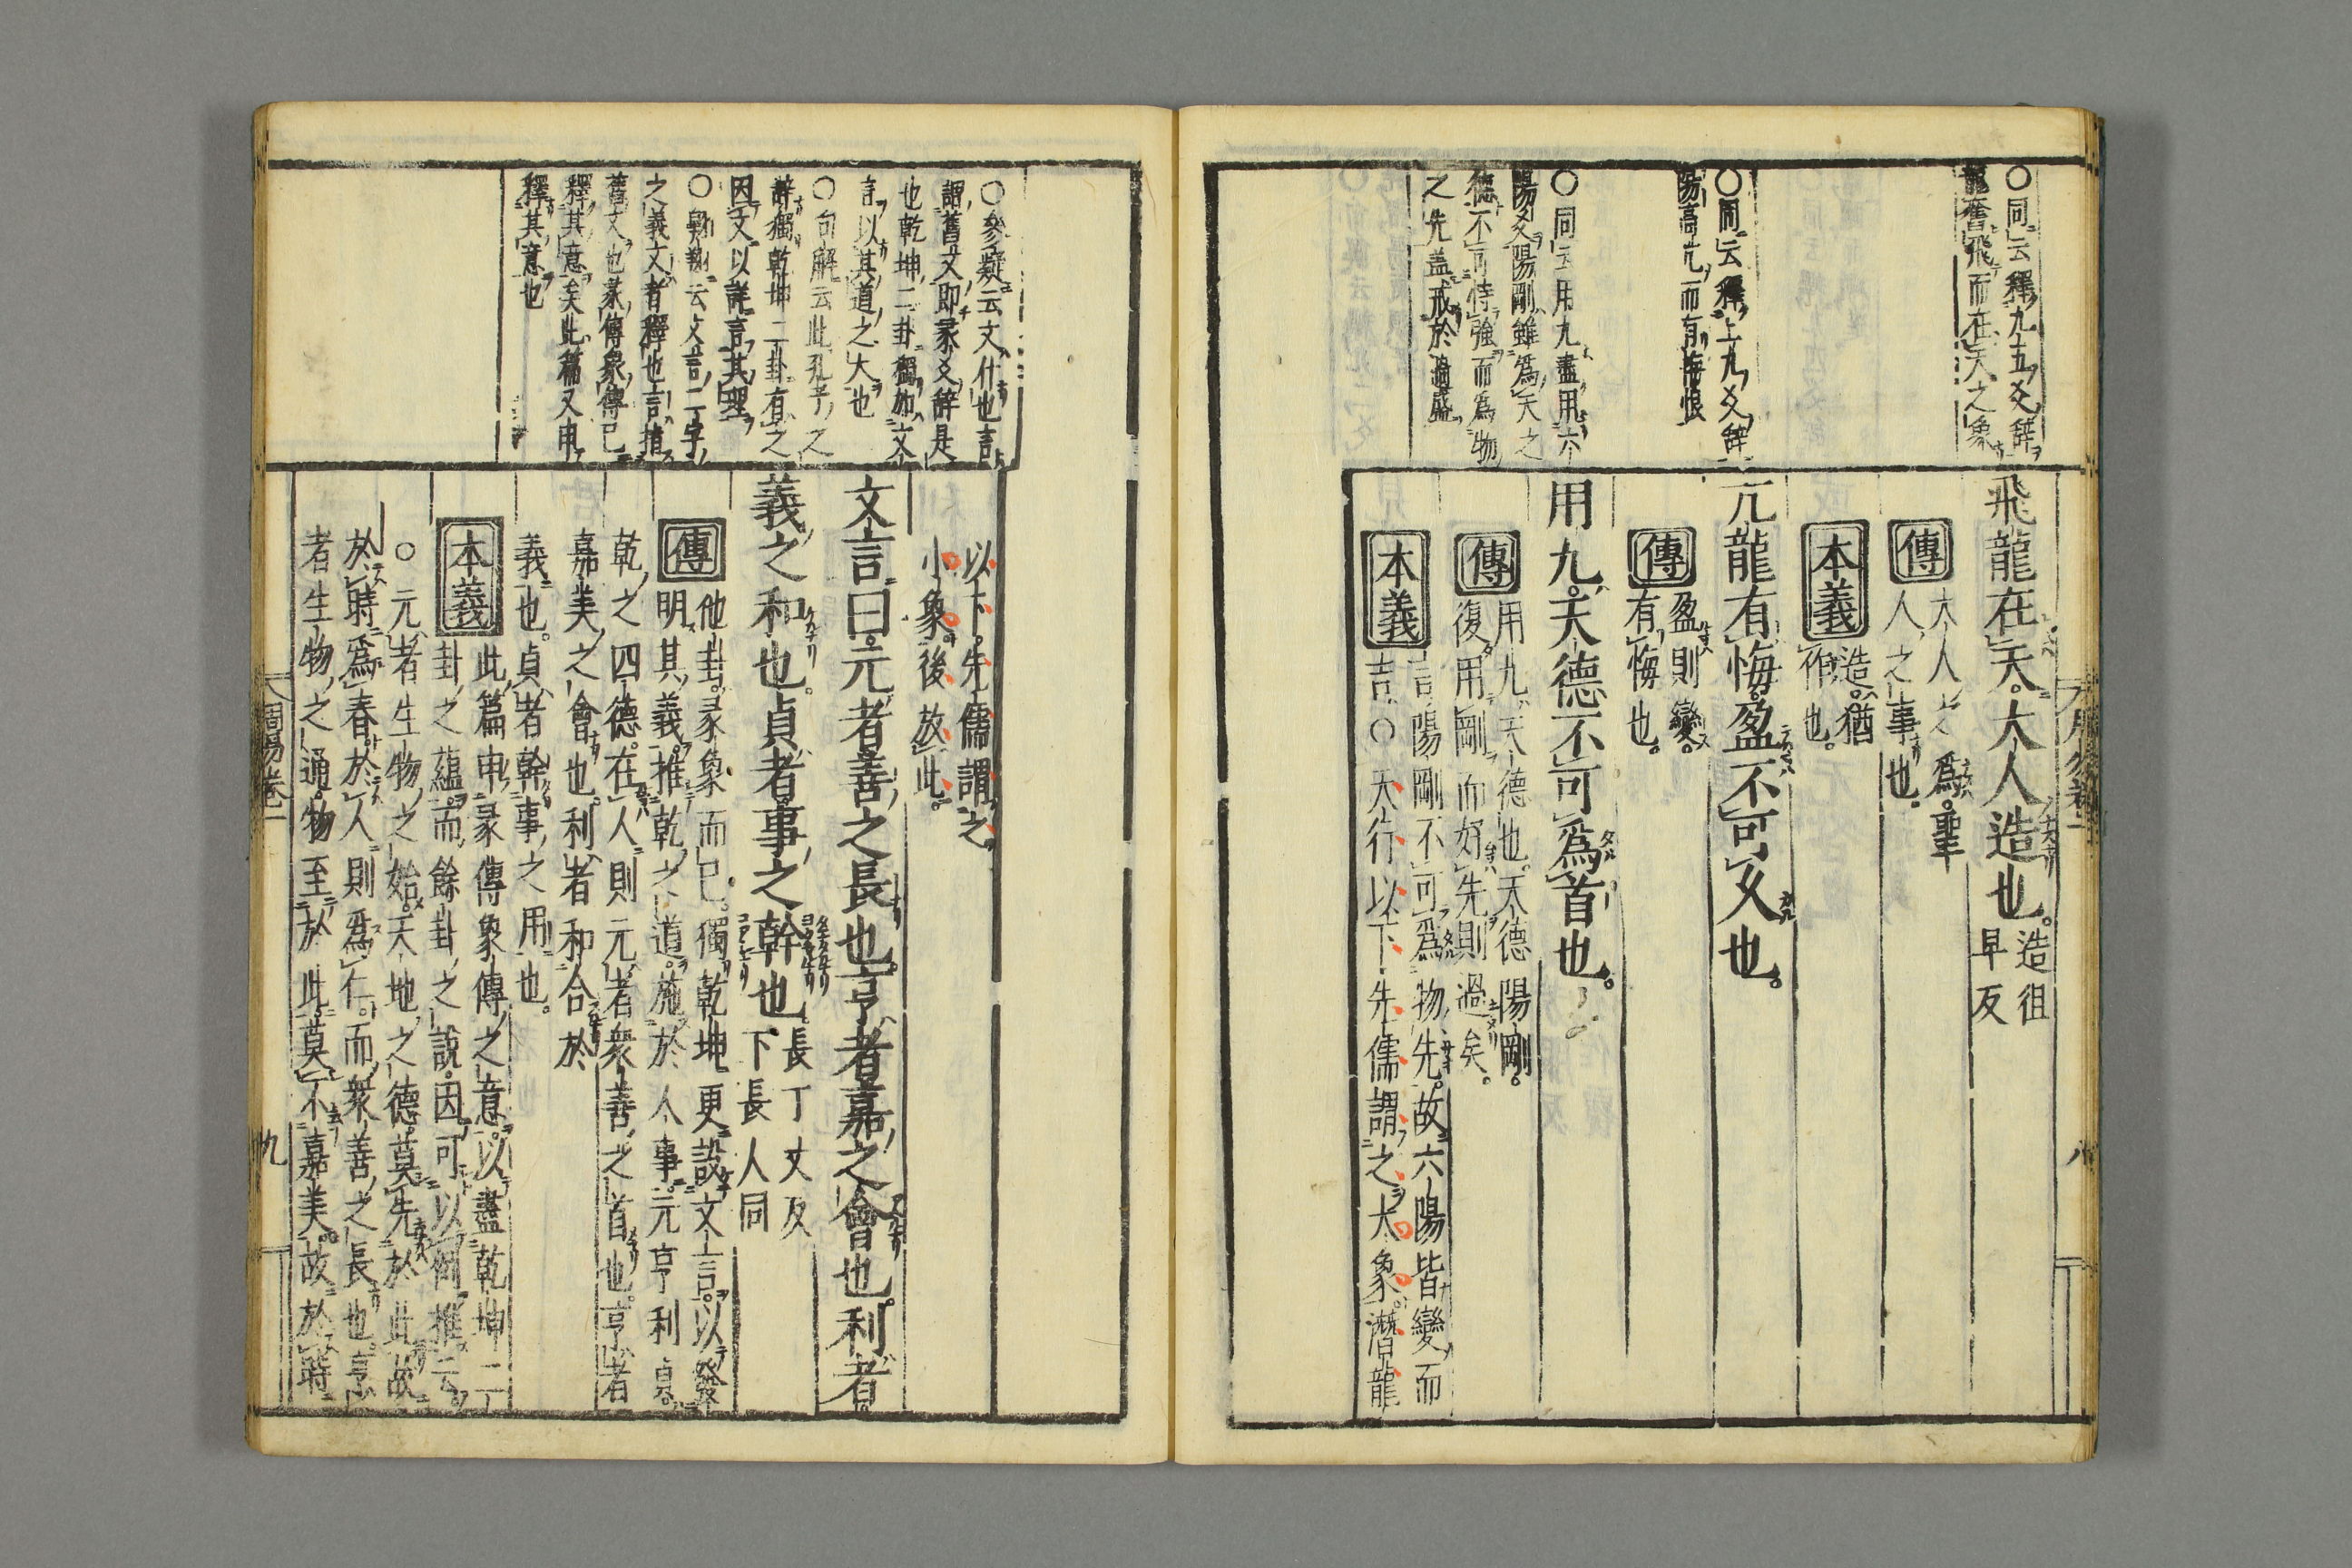 ○同云釋九五爻辭
龍奮飛而在天之象
○同云釋上九爻辭
陽高亢而有悔恨
○同云用九盡用六
陽爻陽剛雖為天之
德不可恃強而為物
之先蓋戒於過盛
飛龍在天。大人造也。造徂
早反
傳
大人之為。聖
人之事也。
本義
造。猶
作也。
亢龍有悔。盈不可久也。
傳
盈則變。
有悔也。
用九。天德不可為首也。
傳
用九。天德也。天德陽剛。
復用剛而好先則過矣。
本義
言陽剛不可為物先。故六陽皆變而
吉。○天行以下先儒謂之大象。潛龍
八
○參疑云文什也言
謂舊文即彖爻辭是
也乾坤二卦獨加文
言以其道之大也
○句解云此孔子之
辭獨乾坤二卦有之
因文以詳言其理
云文言二字
之義文者釋也言指
舊文也彖傳象傳已
釋其意矣此篇又申
釋其意也
以下。先儒謂之
小象。後放此。
文言曰。元者善之長也。亨者嘉之會也。利者
義之和也。貞者事之幹也。長丁丈反
下長人同
傳
他卦。彖象而已。獨乾坤更設文言。以發
明其義。推乾之道。施於人事。元亨利貞。
乾之四德。在人則元者衆善之首也。亨者
嘉美之會也。利者和合於
義也。貞者幹事之用也。
本義
此篇申彖傳象傳之意。以盡乾坤二
卦之蘊。而餘卦之說。因可以例推云。
○元者生物之始。天地之德。莫先於此。故
於時為春。於人則為仁。而衆善之長也。亨
者生物之通。物至於此。莫不嘉美。故於時
周易卷一
九